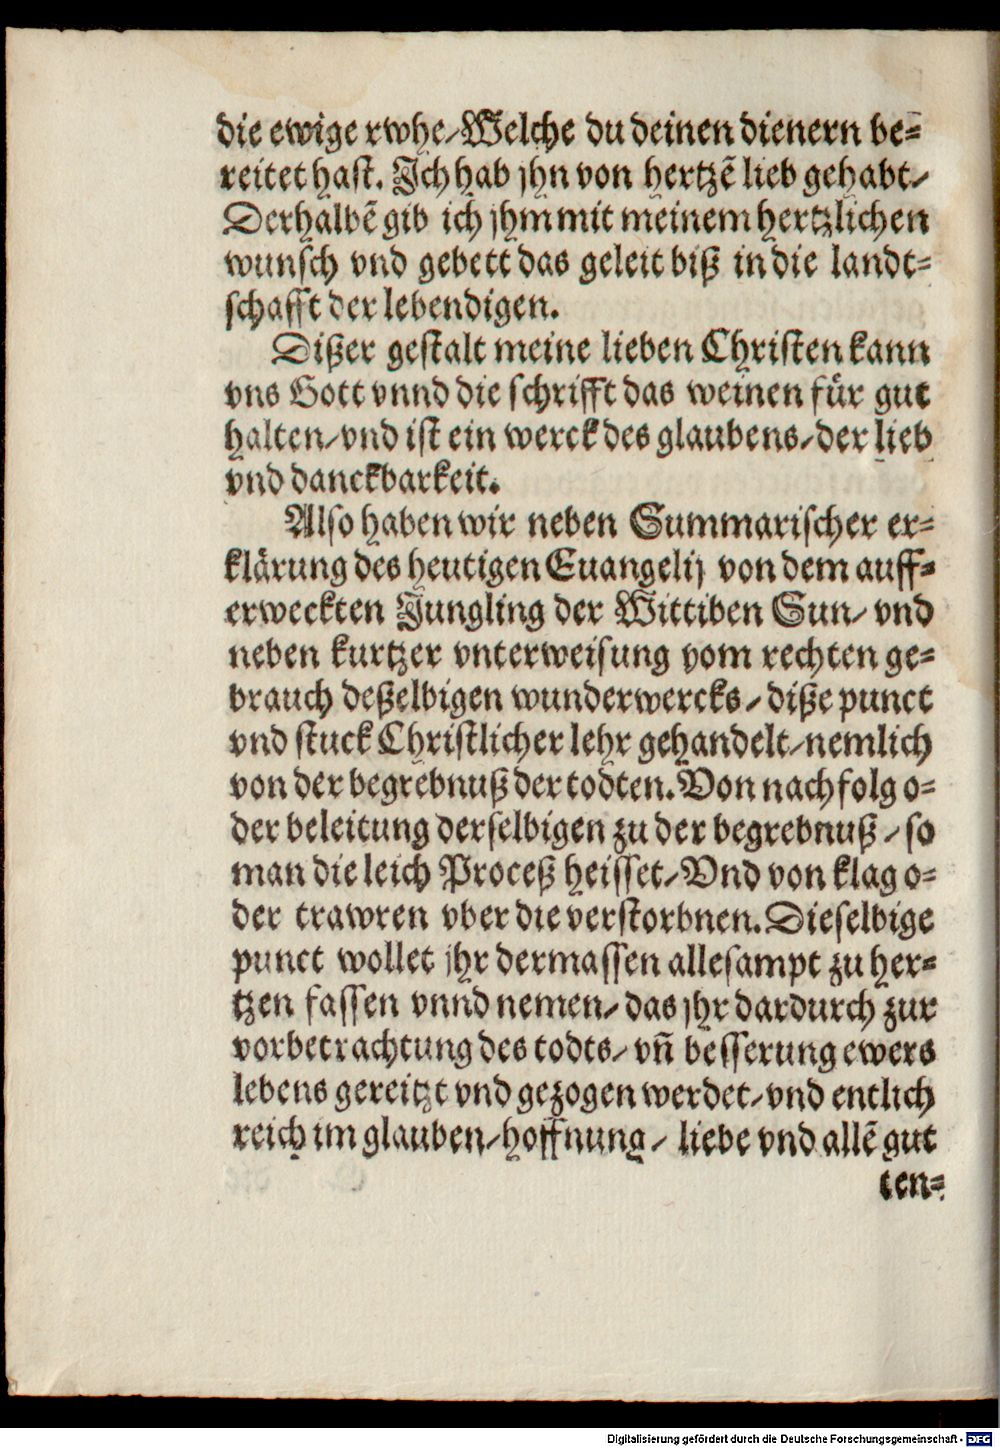 die ewige rwhe/ Welche du deinen dienern be⸗
reitet hast. Ich hab jhn von hertzẽ lieb gehabt/
Derhalbẽ gib ich jhm mit meinem hertzlichen
wunsch vnd gebett das geleit biß in die landt⸗
schafft der lebendigen.
Dißer gestalt meine lieben Christen kann
vns Gott vnnd die schrifft das weinen für gut
halten/ vnd ist ein werck des glaubens/ der lieb
vnd danckbarkeit.
Also haben wir neben Summarischer er⸗
klärung des heutigen Euangelij von dem auff⸗
erweckten Jungling der Wittiben Sun/ vnd
neben kurtzer vnterweisung vom rechten ge⸗
brauch deßelbigen wunderwercks/ diße punct
vnd stuck Christlicher lehr gehandelt/ nemlich
von der begrebnuß der todten. Von nachfolg o⸗
der beleitung derselbigen zu der begrebnuß/ so
man die leich Proceß heisset/ Vnd von klag o⸗
der trawren vber die verstorbnen. Dieselbige
punct wollet jhr dermassen allesampt zu her⸗
tzen fassen vnnd nemen/ das jhr dardurch zur
vorbetrachtung des todts/ vñ besserung ewers
lebens gereitzt vnd gezogen werdet/ vnd entlich
reich im glauben/ hoffnung/ liebe vnd allẽ gut
ten⸗
Digitalisierung gefördert durch die Deutsche Forschungsgemeinschaft - DFG